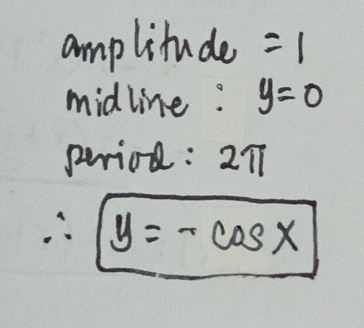 amplitude = 1
midline : y=0
period : 2π
∴ y = - cos x